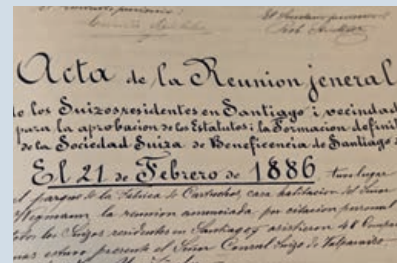 Acta de la Reunion jeneral
de los Suizos residentes en Santiago i vecindad
para la aprobacion de los Estatutos i la Formacion definit
de la Sociedad Suiza de Beneficencia de Santiago
El 21 de Febrero de 1886 tuvo lugar
el parque de la Fabrica de Cartuchos, casa habitacion del Señor
la reunion anunciada por citacion personal
todos los Suizos residentes en Santiago y asistieron 48
estuvo presente el Señor Consul Suizo de Valparaiso